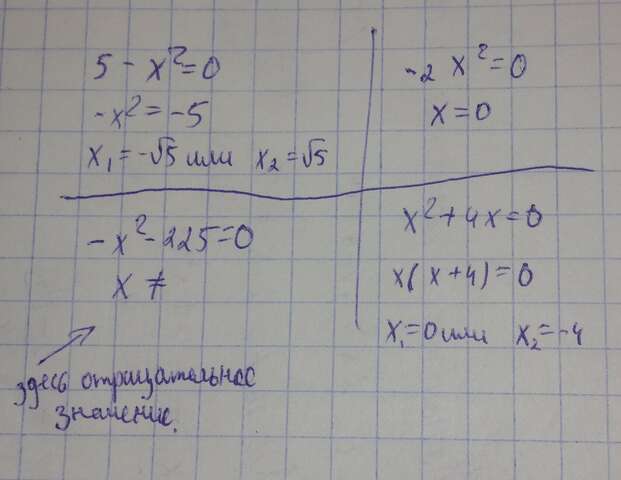 5 - x² = 0
-x² = -5
x₁ = -√5 или x₂ = √5
-2 x² = 0
x = 0
-x² - 225 = 0
x ≠
здесь отрицательное
значение.
x² + 4x = 0
x(x+4) = 0
x₁ = 0 или x₂ = -4